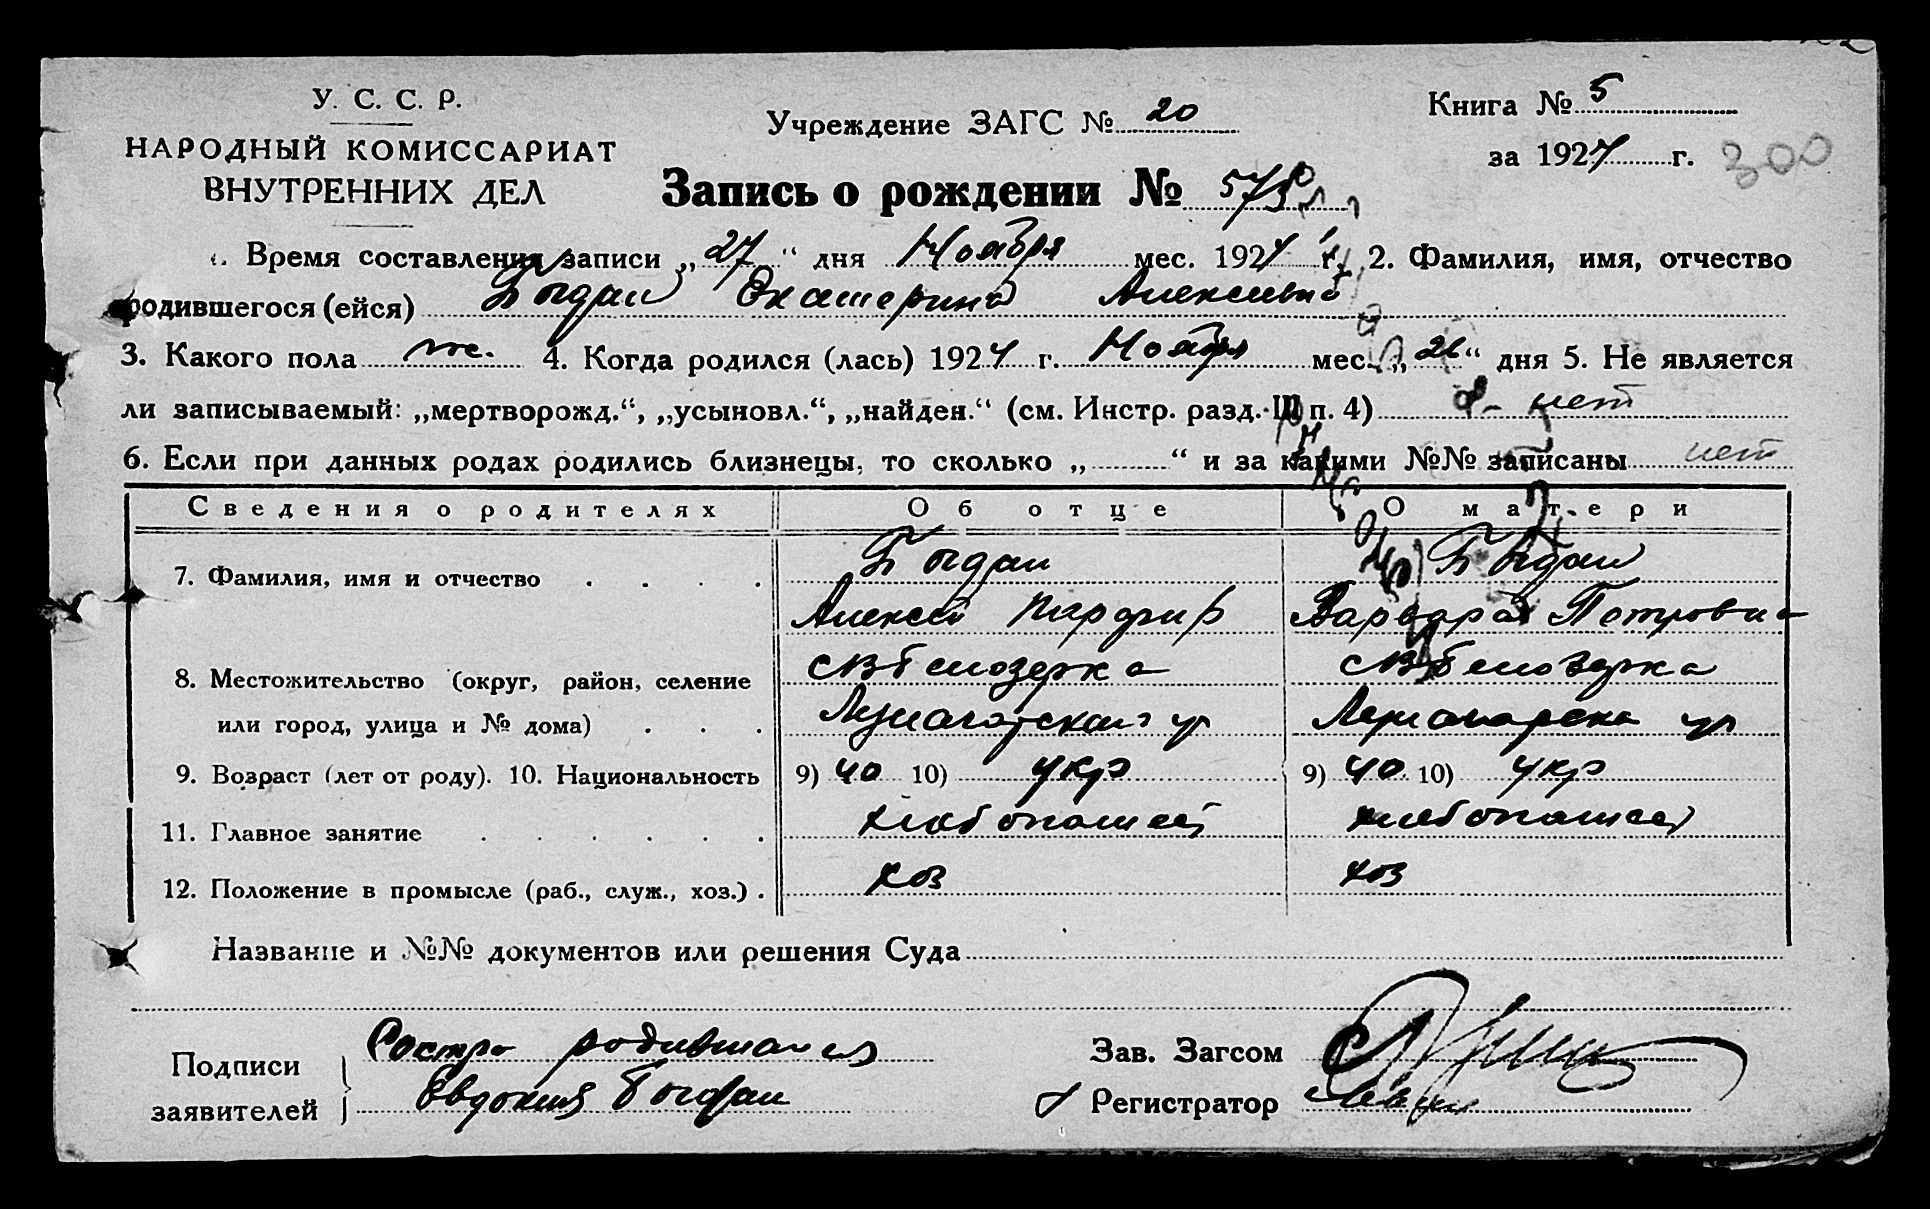 У. С. С. Р.
НАРОДНЫЙ КОМИССАРИАТ
ВНУТРЕННИХ ДЕЛ
Учреждение ЗАГС № 20
Книга № 5
за 1924 г. 300
Запись о рождении №
1. Время составления записи „27“ дня Ноября мес. 1924 г. 2. Фамилия, имя, отчество
родившегося (ейся) Богдан Екатерина Алексеевна
3. Какого пола же. 4. Когда родился (лась) 1924 г. Ноября мес. „26“ дня 5. Не является
ли записываемый: „мертворожд.“, „усыновл.“, „найден.“ (см. Инстр. разд. III п. 4) нет
6. Если при данных родах родились близнецы, то сколько „ “ и за какими №№ записаны нет
Сведения о родителях Об отце О матери
7. Фамилия, имя и отчество Богдан Богдан
Алексей Парфир Варвара Петровна
8. Местожительство (округ, район, селение с Белозерка с Белозерка
или город, улица и № дома) ул ул
9. Возраст (лет от роду). 10. Национальность 9) 40 10) укр 9) 40 10) укр
11. Главное занятие хлебопашец хлебопашец
12. Положение в промысле (раб., служ., хоз.) хоз хоз
Название и №№ документов или решения Суда
Подписи Сестра родившаяся
заявителей Евдокия Богдан
Зав. Загсом
Регистратор